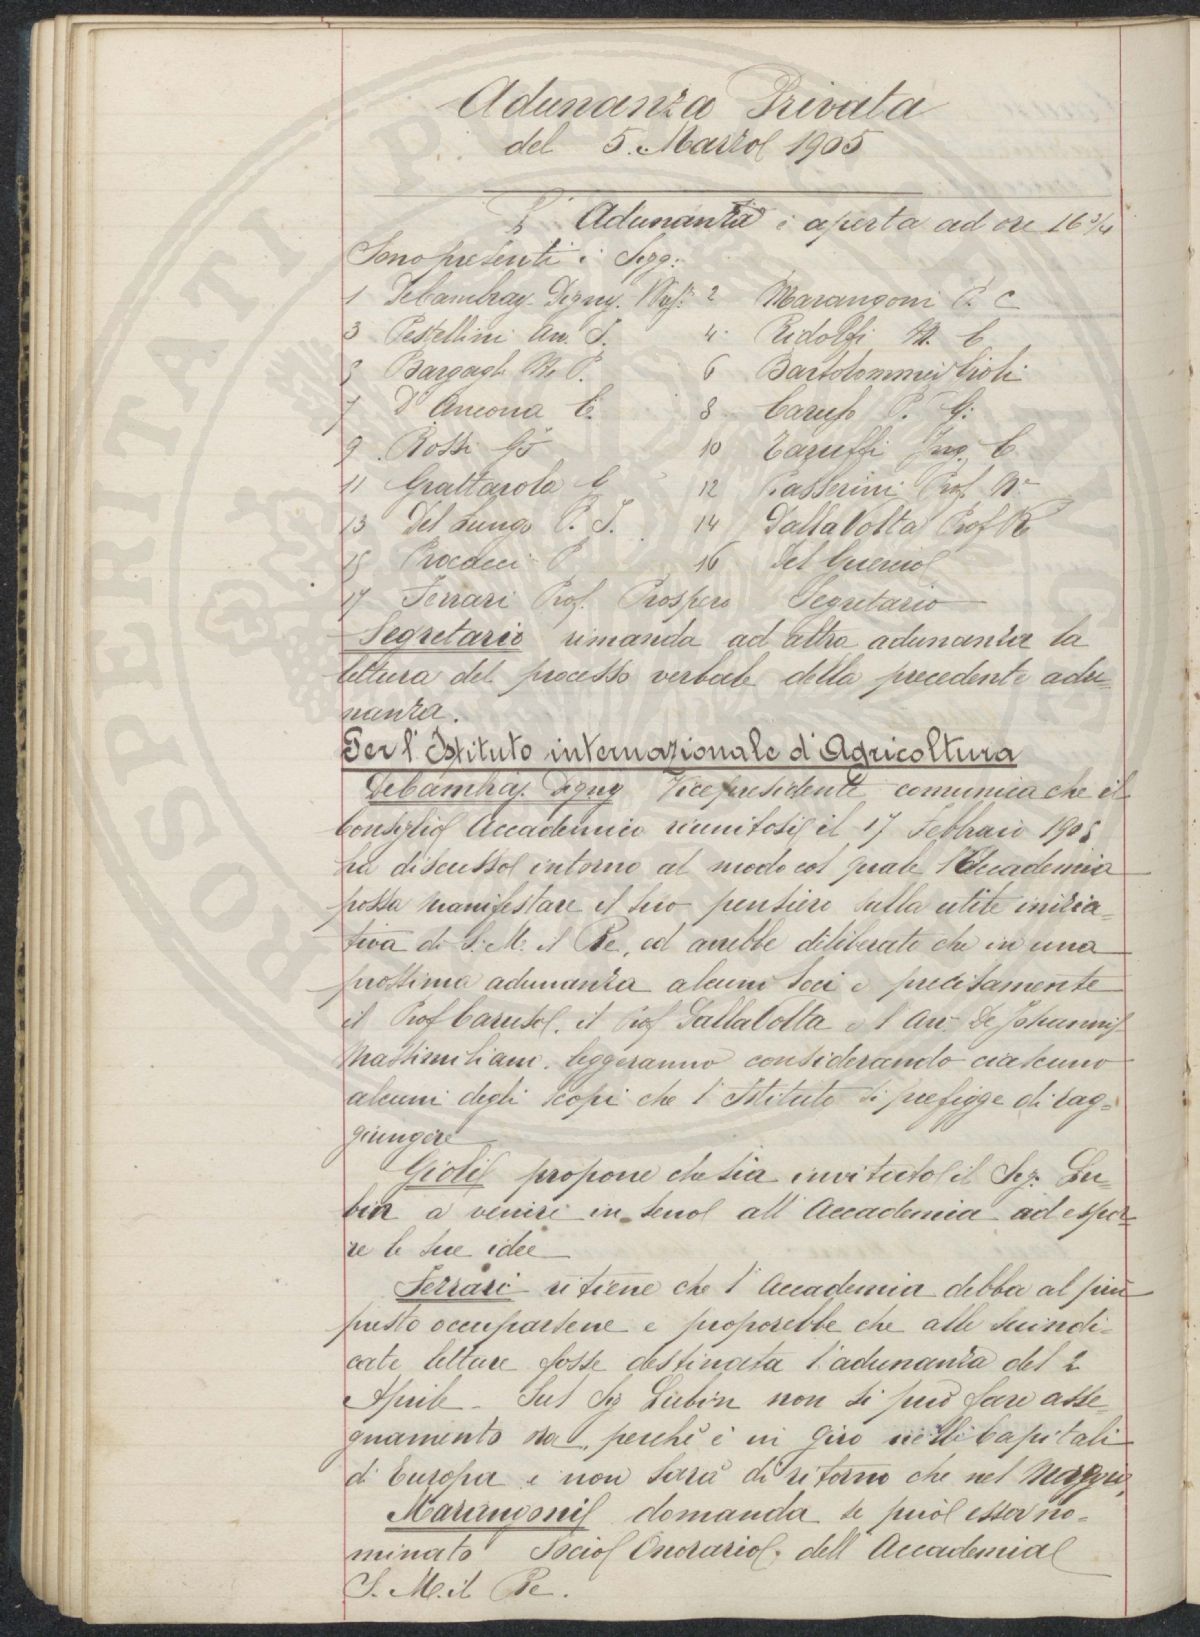 Adunanza Privata
del 5. Marzo 1905
L' Adunanza è aperta ad ore 16 3/4
Sono presenti i Sigg:
1 DeCambray. Digny. 2 Marangoni P. C
3 Pestellini Av. I. 4 Ridolfi M. C
5 Bargagli M. P. 6 Bartolommei Gioli
7 D'Ancona C. 8 Caruso P. G:
9 Rossi Gº 10 Taruffi Ing. C
11 Grattarola G 12 Passerini Prof. Nº
13 Del Lungo P. I. 14 DallaVolta Prof R
15 Procacci P 16 Del Guercio
17 Ferrari Prof. Prospero Segretario
Segretario rimanda ad altra adunanza la
lettura del processo verbale della precedente adu=
nanza.
Per l'Istituto internazionale d'Agricoltura
DeCambray. Digny Vicepresidente comunica che il
Consiglio Accademico riunitosi il 17 Febbraio 1905
ha discusso intorno al modo col quale l'Accademia
possa manifestare il suo pensiero sulla utile inizia=
tiva di S. M. il Re, ed avrebbe deliberato che in una
prossima adunanza alcuni soci e precisamente
il Prof Caruso. il Prof DallaVolta e l'Av. De Johannis
Massimiliano. leggeranno considerando ciascuno
alcuni degli scopi che l'Istituto si prefigge di rag=
giungere
Gioli propone che sia invitato il Sig. Lu=
bin a venire in seno all'Accademia ad espor=
re le sue idee
Ferrari ritiene che l'Accademia debba al più
presto occuparsene e proporebbe che alle suindi=
cate letture fosse destinata l'adunanza del 2
Aprile - Sul Sig Lubin non si può fare asse=
gnamento ora, perchè è in giro nelle Capitali
di Europa e non sarà di ritorno che nel Maggio,
Marangoni domanda se può esser no=
minato Socio Onorario. dell'Accademia
S. M. il Re.
PROSPERITATI PVBLICAE AVGENDAE